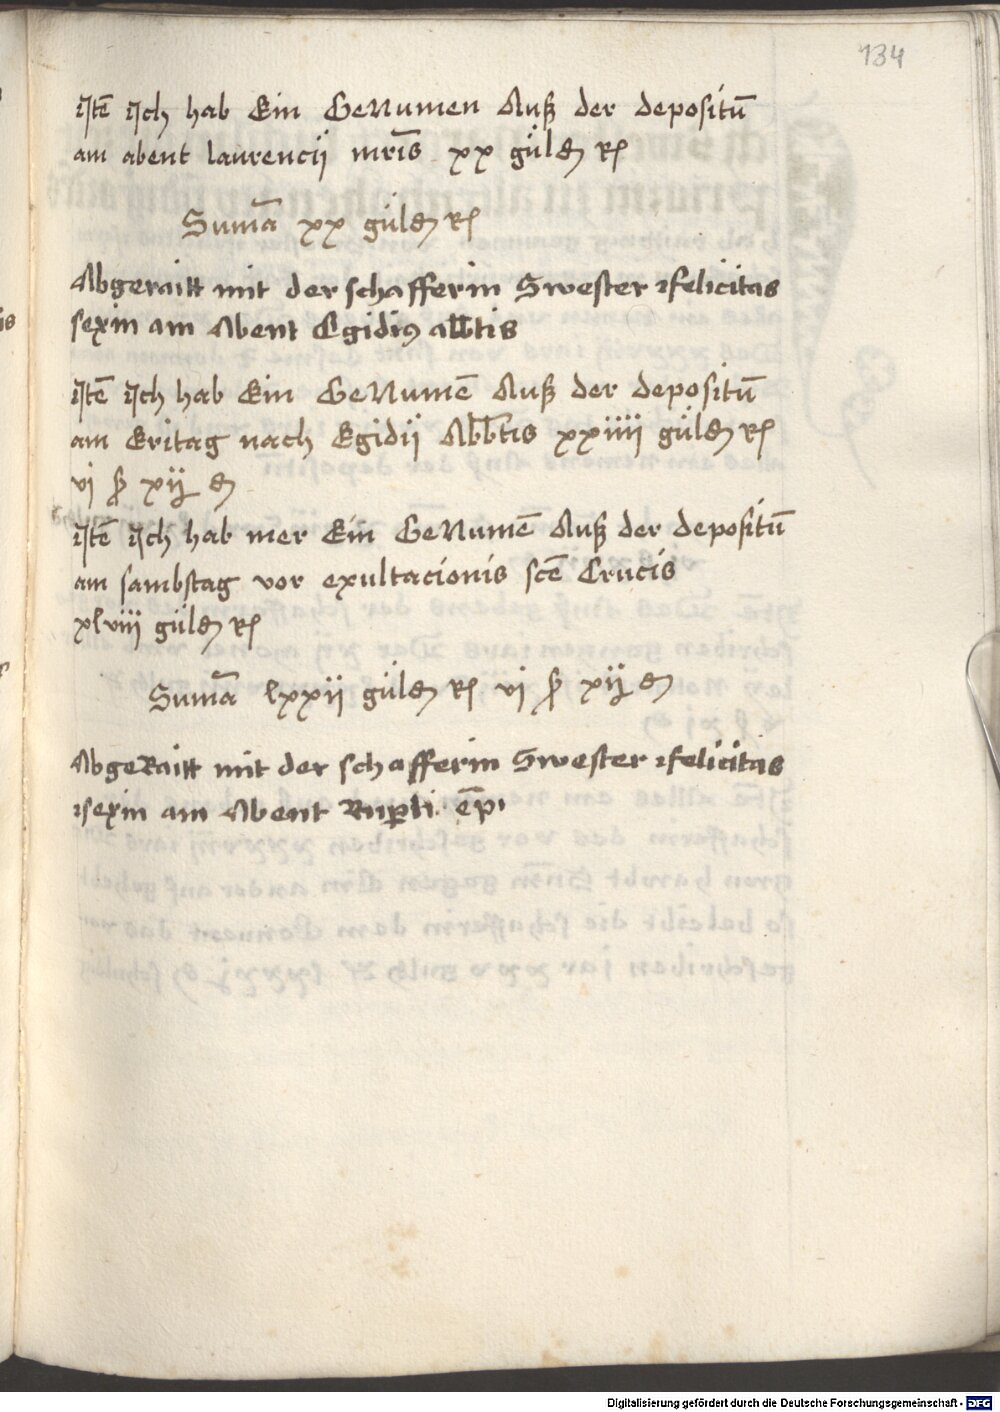 134
Jtē Jch hab Ein GeNumen Auß der depositū
am abent laurencij mr̄is xx güldꝫ Rꝭ
Sum̄a xx güldꝫ Rꝭ
Abgeraitt mit der schafferin Swester felicitas
sexin am Abent Egidiꝰ abb̄tis
Jtē Jch hab Ein GeNumē Auß der depositū
am Eritag nach Egidij Abb̄tis xxiiii güldꝫ Rꝭ
vi ꝭ xij ₰
Jtē Jch hab mer Ein GeNumē Auß der depositū
am sambstag vor exultacionis scē Crucis
xlviii güldꝫ Rꝭ
Sum̄a lxxii güldꝫ Rꝭ vi ꝭ xij ₰
AbgeRaitt mit der schafferin Swester felicitas
sexin am Abent Ruꝑti ep̄i
Digitalisierung gefördert durch die Deutsche Forschungsgemeinschaft - DFG